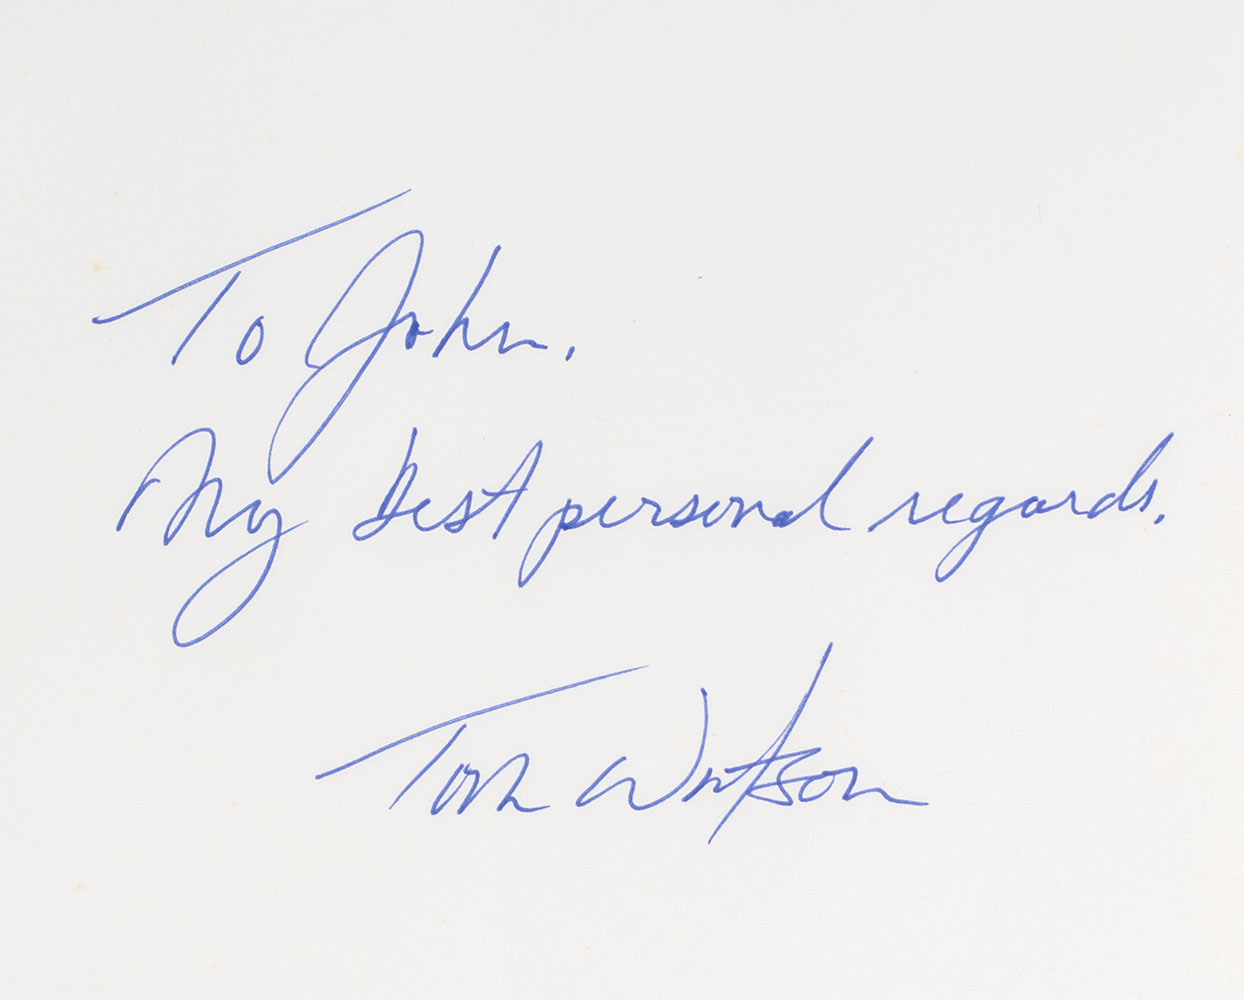 To John,
My best personal regards,
Tom Watson